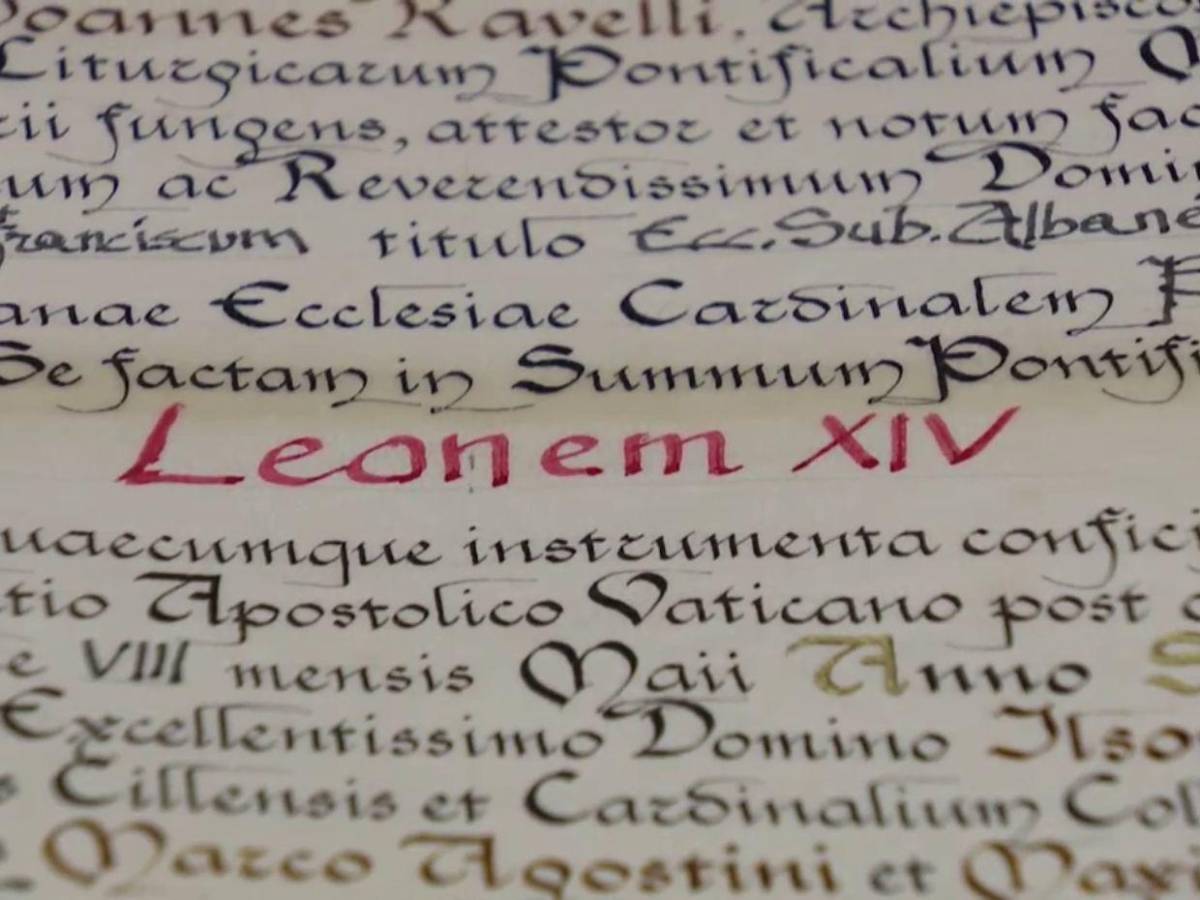 Joannes Ravelli, Archiepisco
Liturgicarum Pontificalium M
rii fungens, attestor et notum fac
um ac Reverendissimum Domin
Franciscum titulo Ecc. Sub. Albane
anae Ecclesiae Cardinalem P
Se factam in Summum Pontifi
Leonem XIV
uaecumque instrumenta confici
tio Apostolico Vaticano post
e VIII mensis Maii Anno S
Excellentissimo Domino Ilso
s Cillensis et Cardinalium Col
Marco Agostini et Maxi